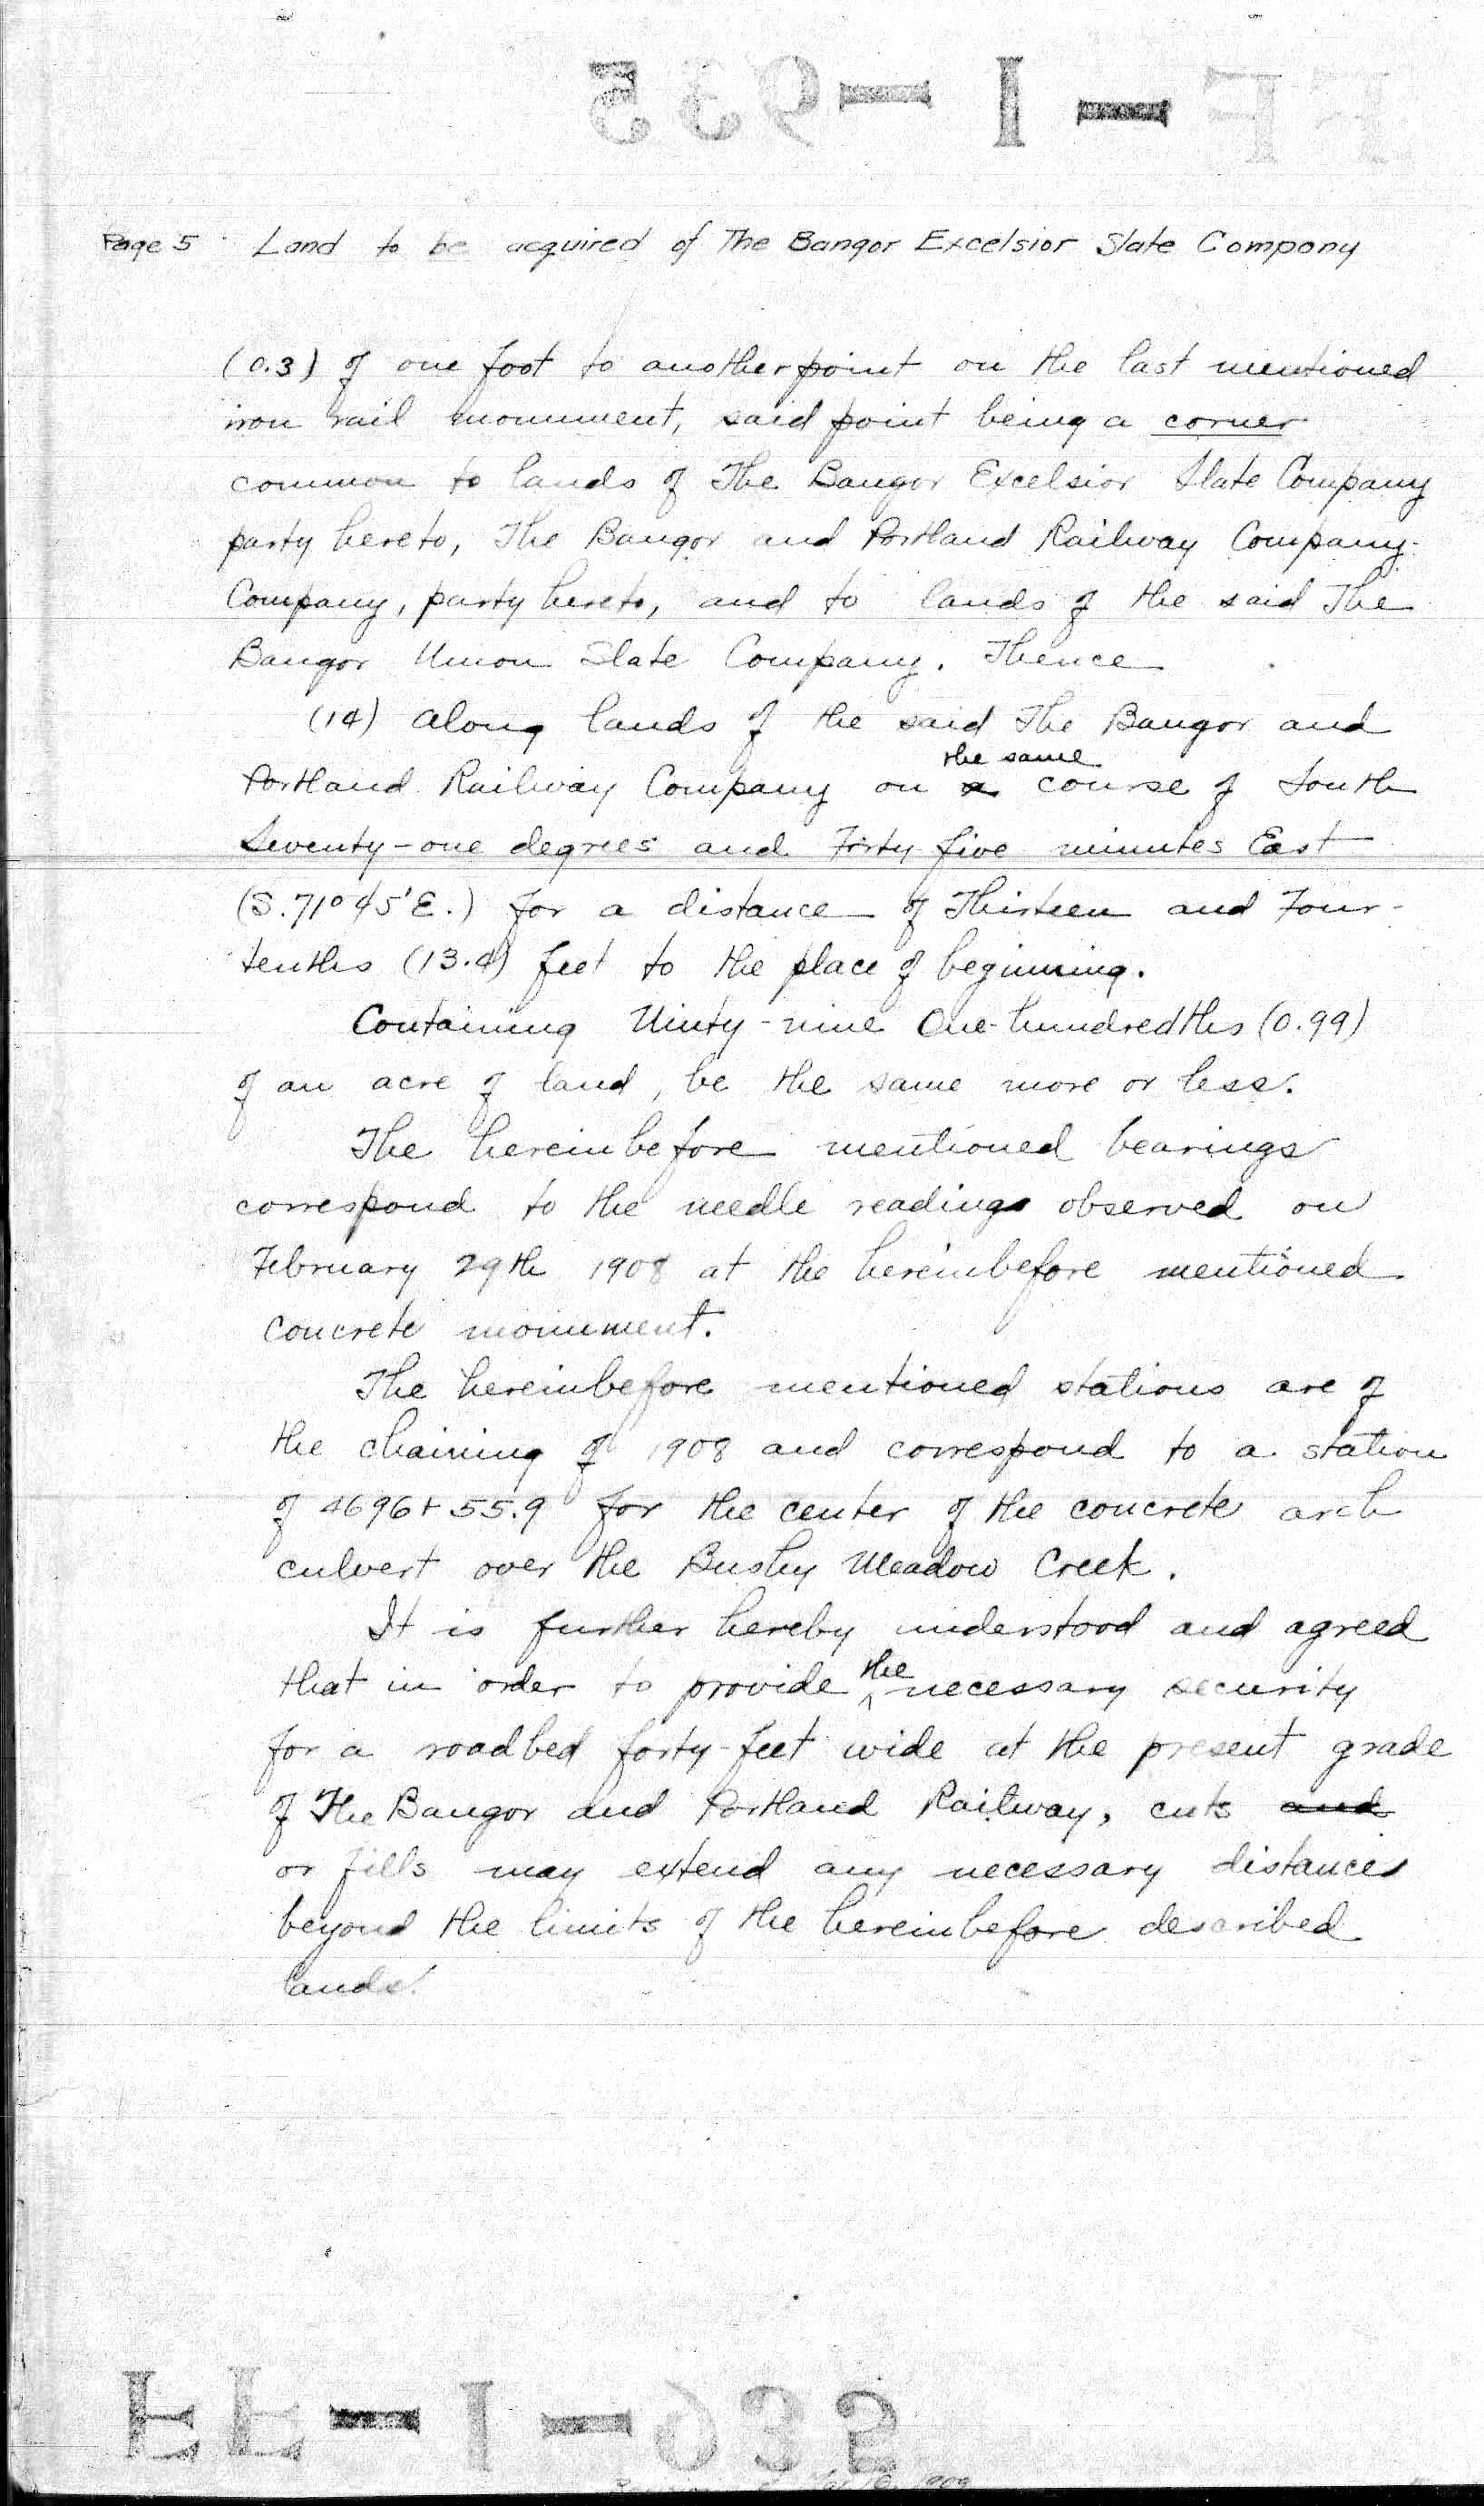 Page 5 Land to be acquired of The Bangor Excelsior Slate Company
(0.3) of one foot to another point on the last mentioned
iron rail monument, said point being a corner
common to lands of The Bangor Excelsior Slate Company
party hereto, The Bangor and Portland Railway Company
Company, party hereto, and to lands of the said The
Bangor Union Slate Company. Thence
(14) along lands of the said The Bangor and
the same
Portland Railway Company on a course of South
Seventy-one degrees and Forty five minutes East
(S. 71° 45' E.) for a distance of Thirteen and Four-
tenths (13.4) feet to the place of beginning.
Containing Ninty-nine One-hundredths (0.99)
of an acre of land, be the same more or less.
The hereinbefore mentioned bearings
correspond to the needle readings observed on
February 29th 1908 at the hereinbefore mentioned
concrete monument.
The hereinbefore mentioned stations are of
the chaining of 1908 and correspond to a station
of 4696+55.9 for the center of the concrete arch
culvert over the Bushy Meadow Creek.
It is further hereby understood and agreed
that in order to provide ^the necessary security
for a roadbed forty-feet wide at the present grade
of The Bangor and Portland Railway, cuts and
or fills may extend any necessary distances
beyond the limits of the hereinbefore described
lands.
1909